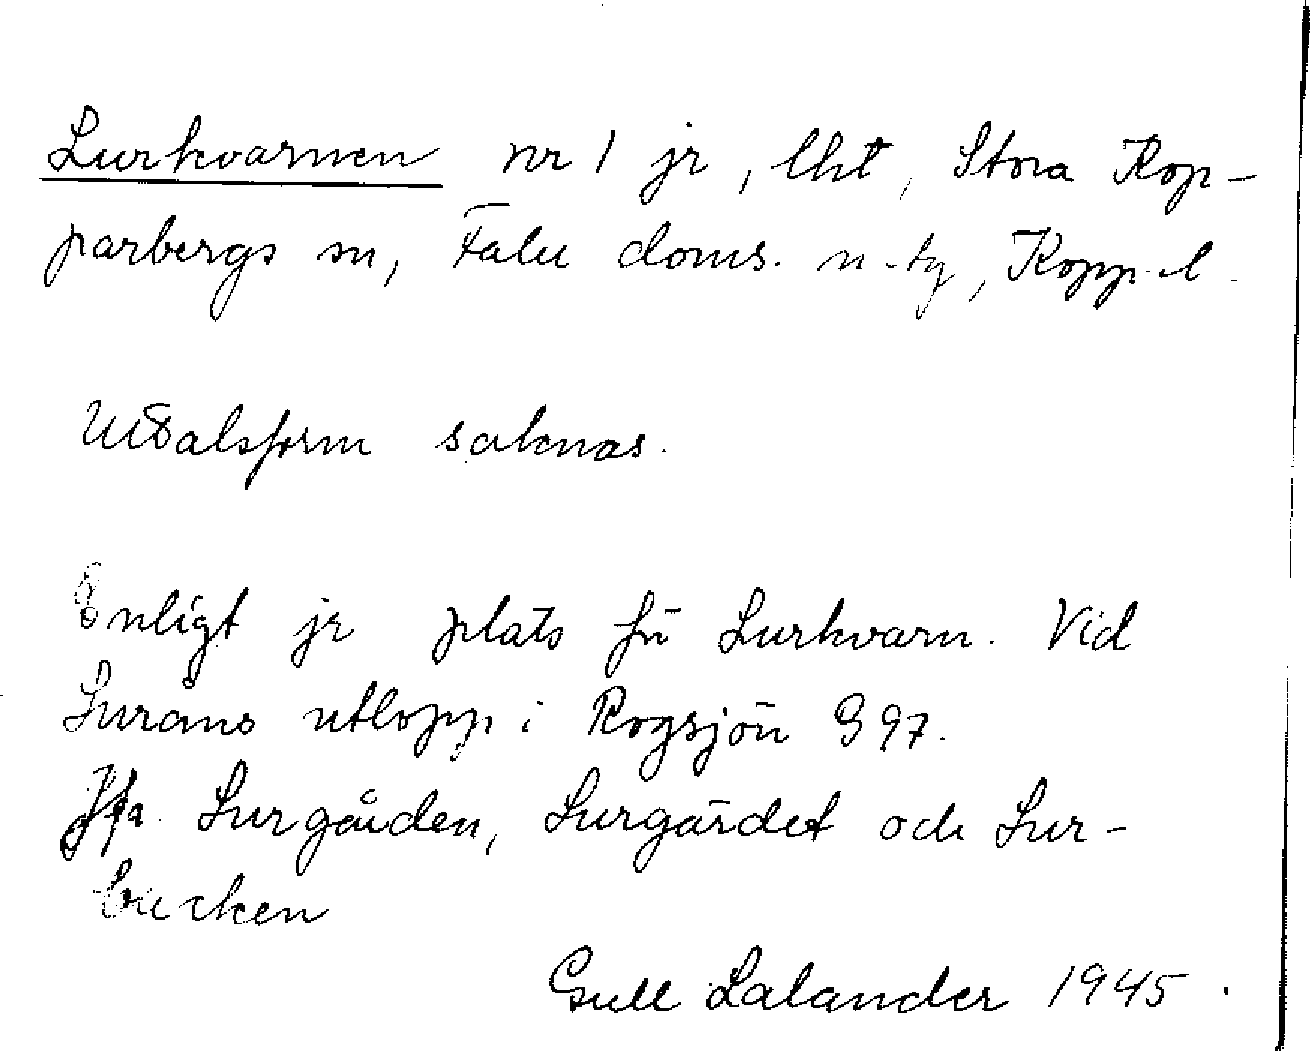 Lurkvarnen nr 1 jr, lht, Stora Kop-
parbergs sn, Falu doms. n-tg, Kopp. l.
Uttalsform saknas.
Enligt jr plats för Lurkvarn. Vid
Luråns utlopp i Rogsjön 997.
Jfr Lurgården, Lurgärdet och Lur-
backen
Gull Lalander 1945.